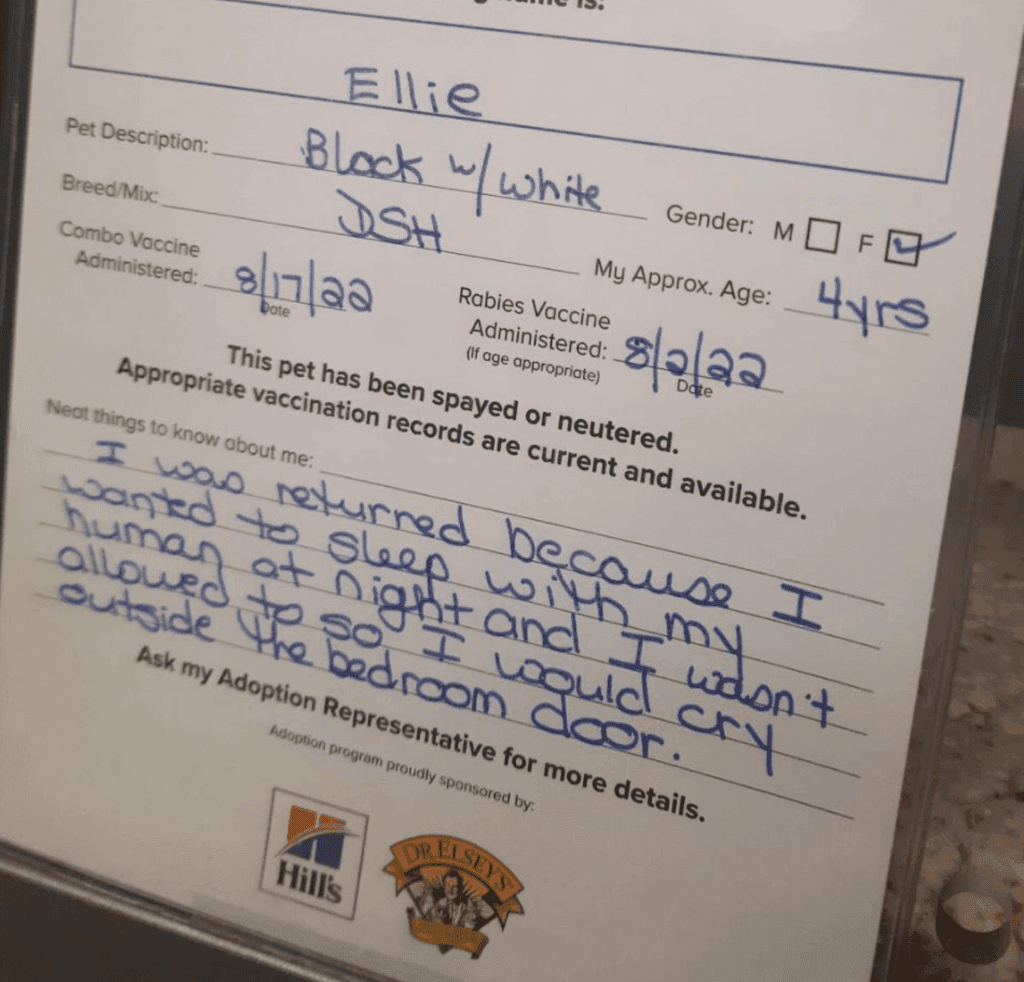 name is:
Ellie
Pet Description: Black w/ white
Gender: M F
Breed/Mix: DSH
My Approx. Age: 4yrs
Combo Vaccine
Administered: 8/17/22
Date
Rabies Vaccine
Administered: 8/2/22
(If age appropriate)
Date
This pet has been spayed or neutered.
Appropriate vaccination records are current and available.
Neat things to know about me:
I was returned because I
wanted to sleep with my
human at night and I wasn't
allowed to so I would cry
outside the bedroom door.
Ask my Adoption Representative for more details.
Adoption program proudly sponsored by:
Hill's
DR ELSEY'S